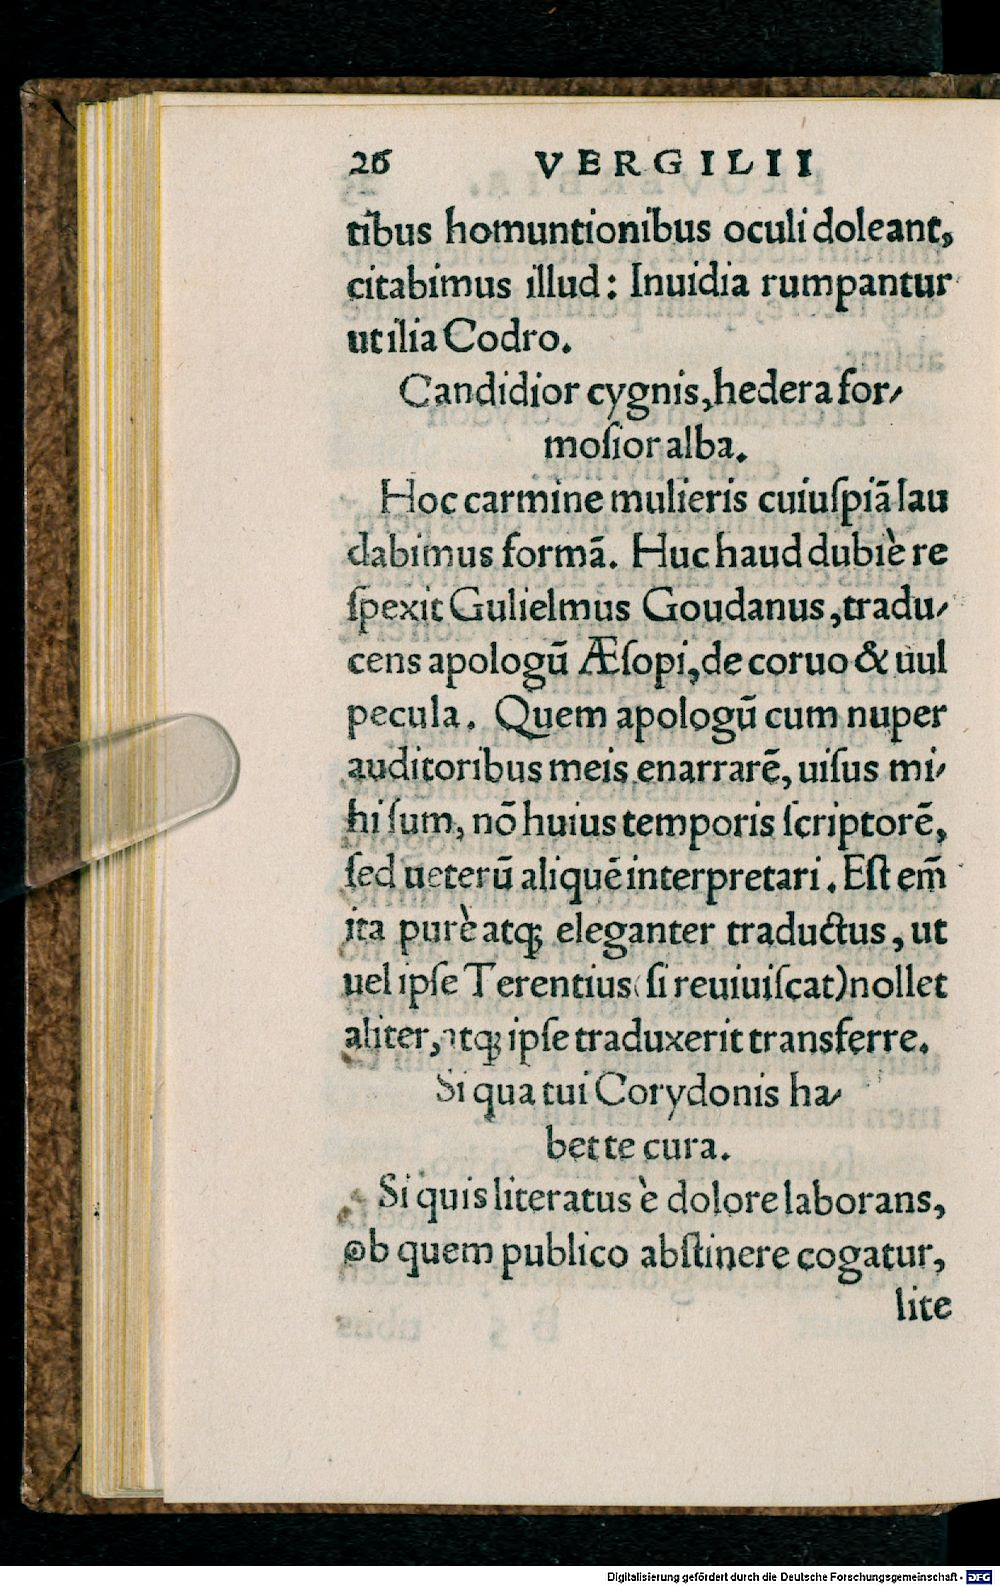 26 VERGILII
tibus homuntionibus oculi doleant,
citabimus illud: Inuidia rumpantur
ut ilia Codro.
Candidior cygnis, hedera for⸗
moſior alba.
Hoc carmine mulieris cuiuſpiā lau
dabimus formā. Huc haud dubiè re
ſpexit Gulielmus Goudanus, tradu⸗
cens apologū Æſopi, de coruo & uul
pecula. Quem apologū cum nuper
auditoribus meis enarrarē, uiſus mi⸗
hi ſum, nō huius temporis ſcriptorē,
ſed ueterū aliquē interpretari. Eſt em̄
ita purè atq; eleganter traductus, ut
uel ipſe Terentius (ſi reuiuiſcat) nollet
aliter, atq; ipſe traduxerit transferre.
Si qua tui Corydonis ha⸗
bet te cura.
Si quis literatus è dolore laborans,
ob quem publico abſtinere cogatur,
lite
Digitalisierung gefördert durch die Deutsche Forschungsgemeinschaft - DFG